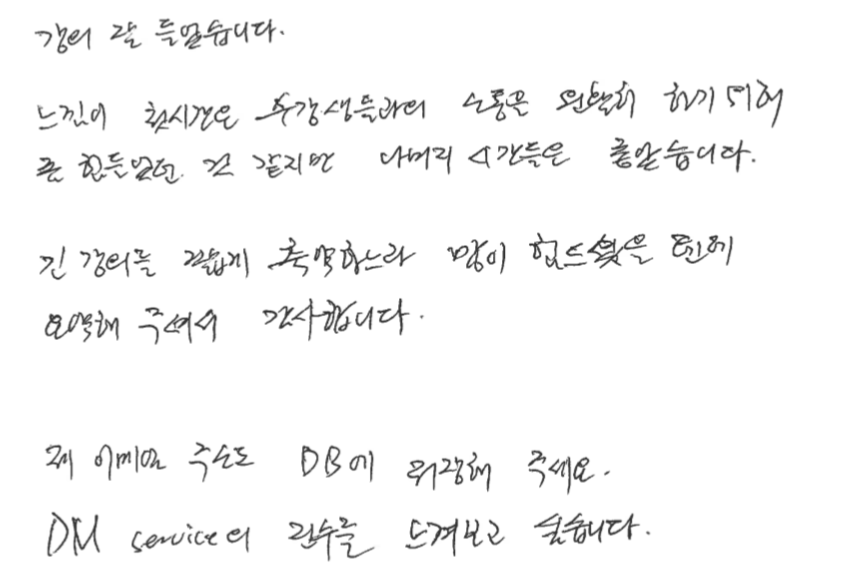 강의 잘 들었습니다.
느낌이 첫시간은 수강생들과의 소통은 원활히 하기 위해
좀 힘들었던 것 같지만 나머지 시간들은 좋았습니다.
긴 강의를 짧게 축약하느라 많이 힘드셨을 텐데
요약해 주셔서 감사합니다.
제 이메일 주소도 DB에 저장해 주세요.
DM service의 진수를 느껴보고 싶습니다.